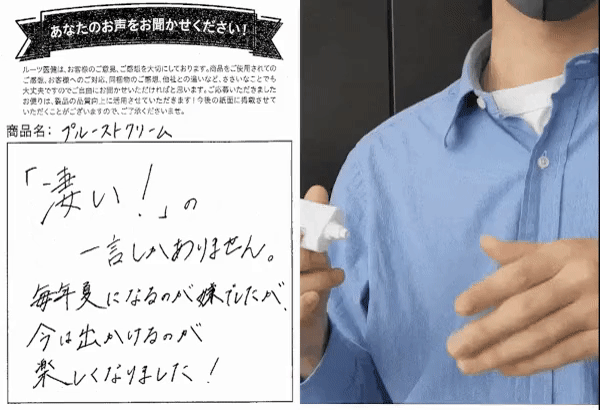 あなたのお声をお聞かせください！
ルーツ医健は、お客様のご意見、ご感想を大切にしております。商品をご使用されての
ご感想、お客様へのご対応、同梱物のご感想、他社との違いなど、ささいなことでも
大丈夫ですのでご自由にお聞かせいただければと思います。ご応募いただきました
お便りは、製品の品質向上に活用させていただきます！今後の紙面に掲載させて
いただくことがございますので、ご了承くださいませ。
商品名：プルーストクリーム
「凄い！」の
一言しかありません。
毎年夏になるのが嫌でしたが、
今は出かけるのが
楽しくなりました！